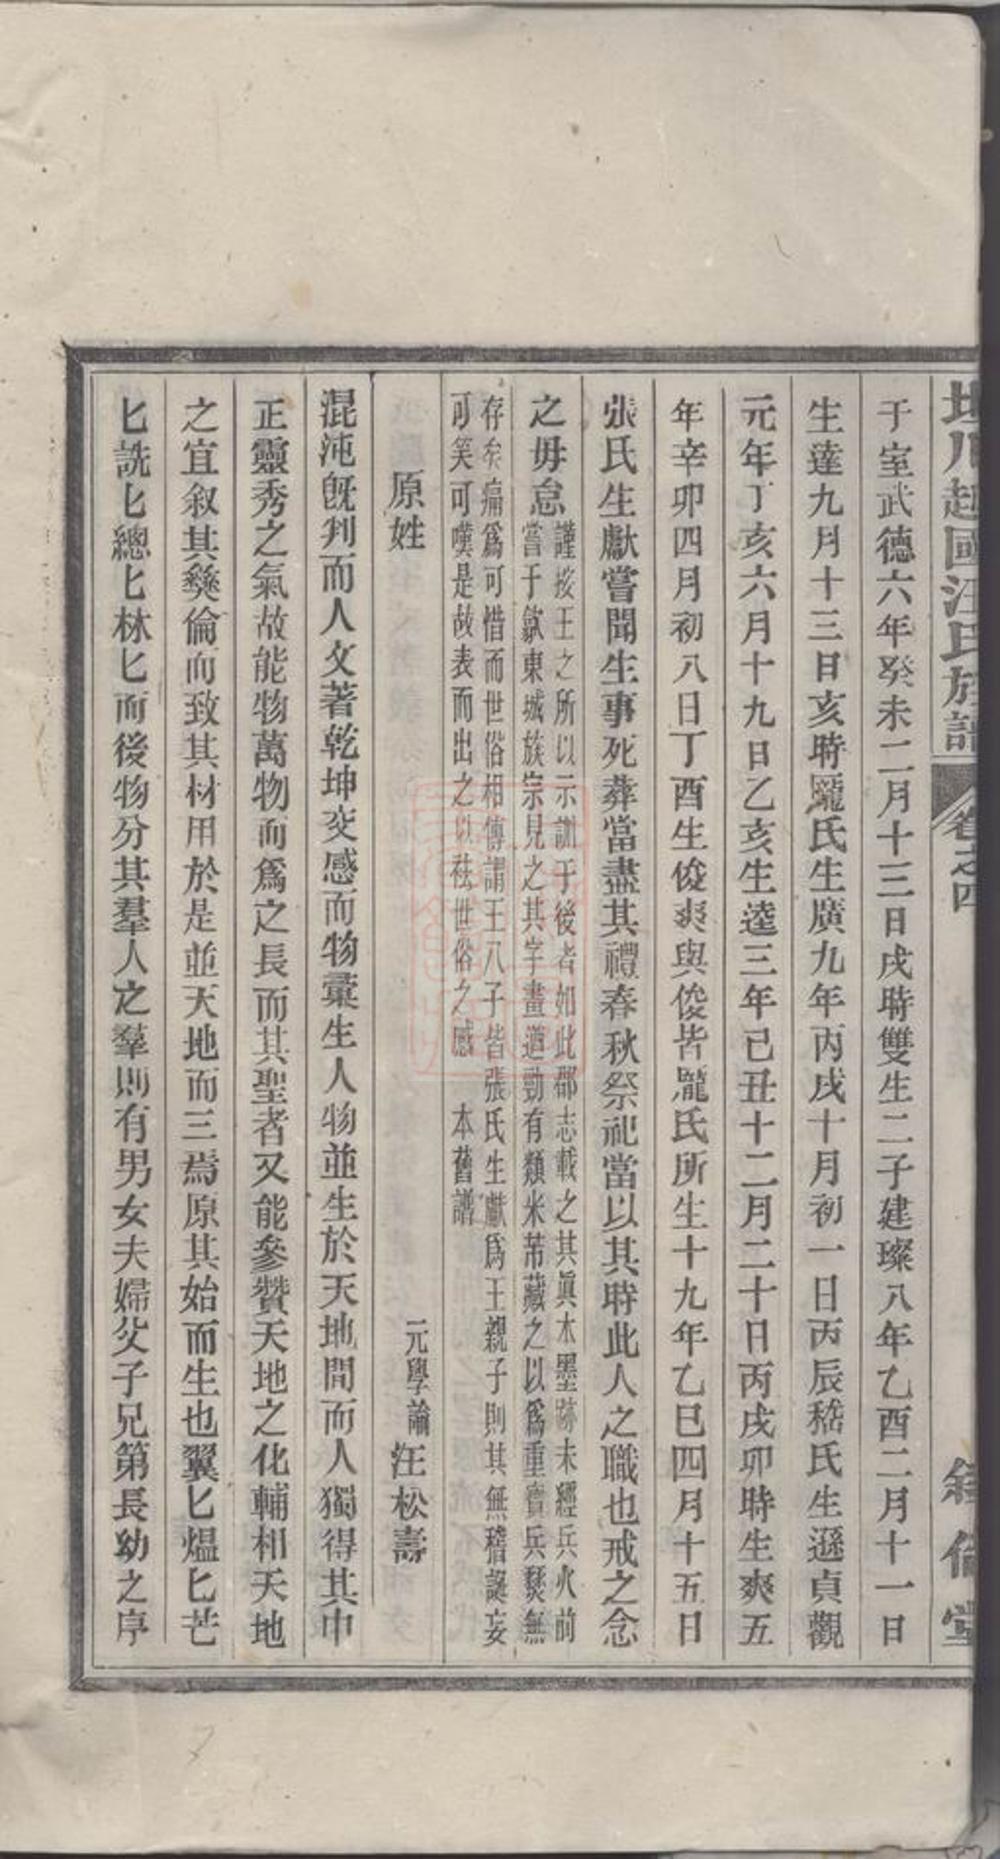 坦川越國汪氏族譜 卷之四 敘倫堂
于室武德六年癸未二月十三日戌時雙生二子建璨八年乙酉二月十一日
生達九月十三日亥時龐氏生廣九年丙戌十月初一日丙辰嵇氏生遜貞觀
元年丁亥六月十九日乙亥生逵三年己丑十二月二十日丙戌卯時生爽五
年辛卯四月初八日丁酉生俊爽與俊皆龐氏所生十九年乙巳四月十五日
張氏生獻嘗聞生事死葬當盡其禮春秋祭祀當以其時此人之職也戒之念
之毋怠
謹按王之所以示訓于後者如此郡志載之其眞本墨跡未經兵火前
嘗于歙東城族宗見之其字畫遒勁有類米芾藏之以爲重寶兵燹無
存矣痛爲可惜而世俗相傳謂王八子皆張氏生獻爲王親子則其無稽誕妄
可笑可嘆是故表而出之以袪世俗之惑 本舊譜
原姓 元學諭汪松壽
混沌旣判而人文著乾坤交感而物彙生人物並生於天地間而人獨得其中
正靈秀之氣故能物萬物而爲之長而其聖者又能參贊天地之化輔相天地
之宜叙其彝倫而致其材用於是並天地而三焉原其始而生也翼匕熅匕芒
匕詵匕總匕林匕而後物分其羣人之羣則有男女夫婦父子兄第長幼之序